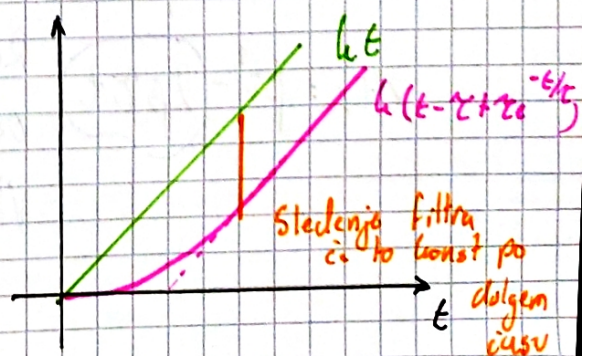 kt
k(t-τ+τe^-t/τ)
Sledenje filtra
to const po
dolgem
času
t